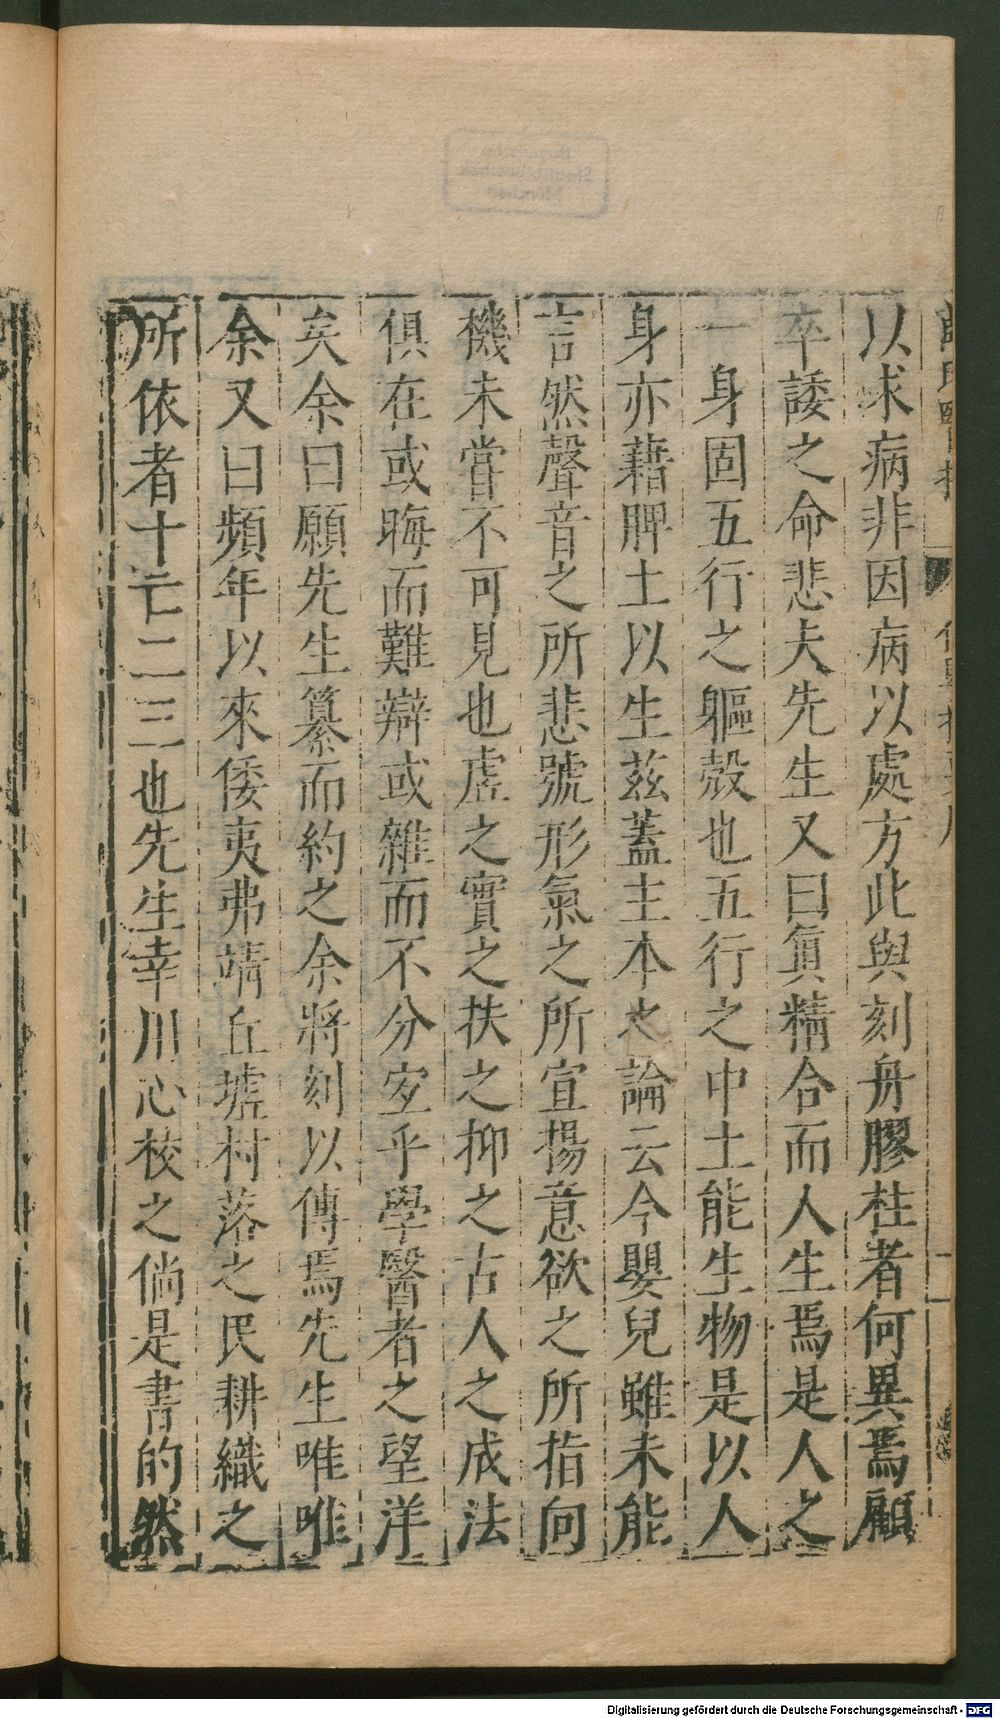 以求病非因病以處方此與刻舟膠柱者何異焉顧
卒諉之命悲夫先生又曰眞精合而人生焉是人之
一身固五行之軀殼也五行之中土能生物是以人
身亦藉脾土以生茲蓋主本之論云今嬰兒雖未能
言然聲音之所悲號形氣之所宣揚意欲之所指向
機未嘗不可見也虛之實之扶之抑之古人之成法
俱在或晦而難辯或雜而不分宐乎學醫者之望洋
矣余曰願先生纂而約之余將刻以傳焉先生唯唯
余又曰頻年以來倭夷弗靖丘墟村落之民耕織之
所依者十亡二三也先生幸川心校之倘是書的然
Digitalisierung gefördert durch die Deutsche Forschungsgemeinschaft - DFG